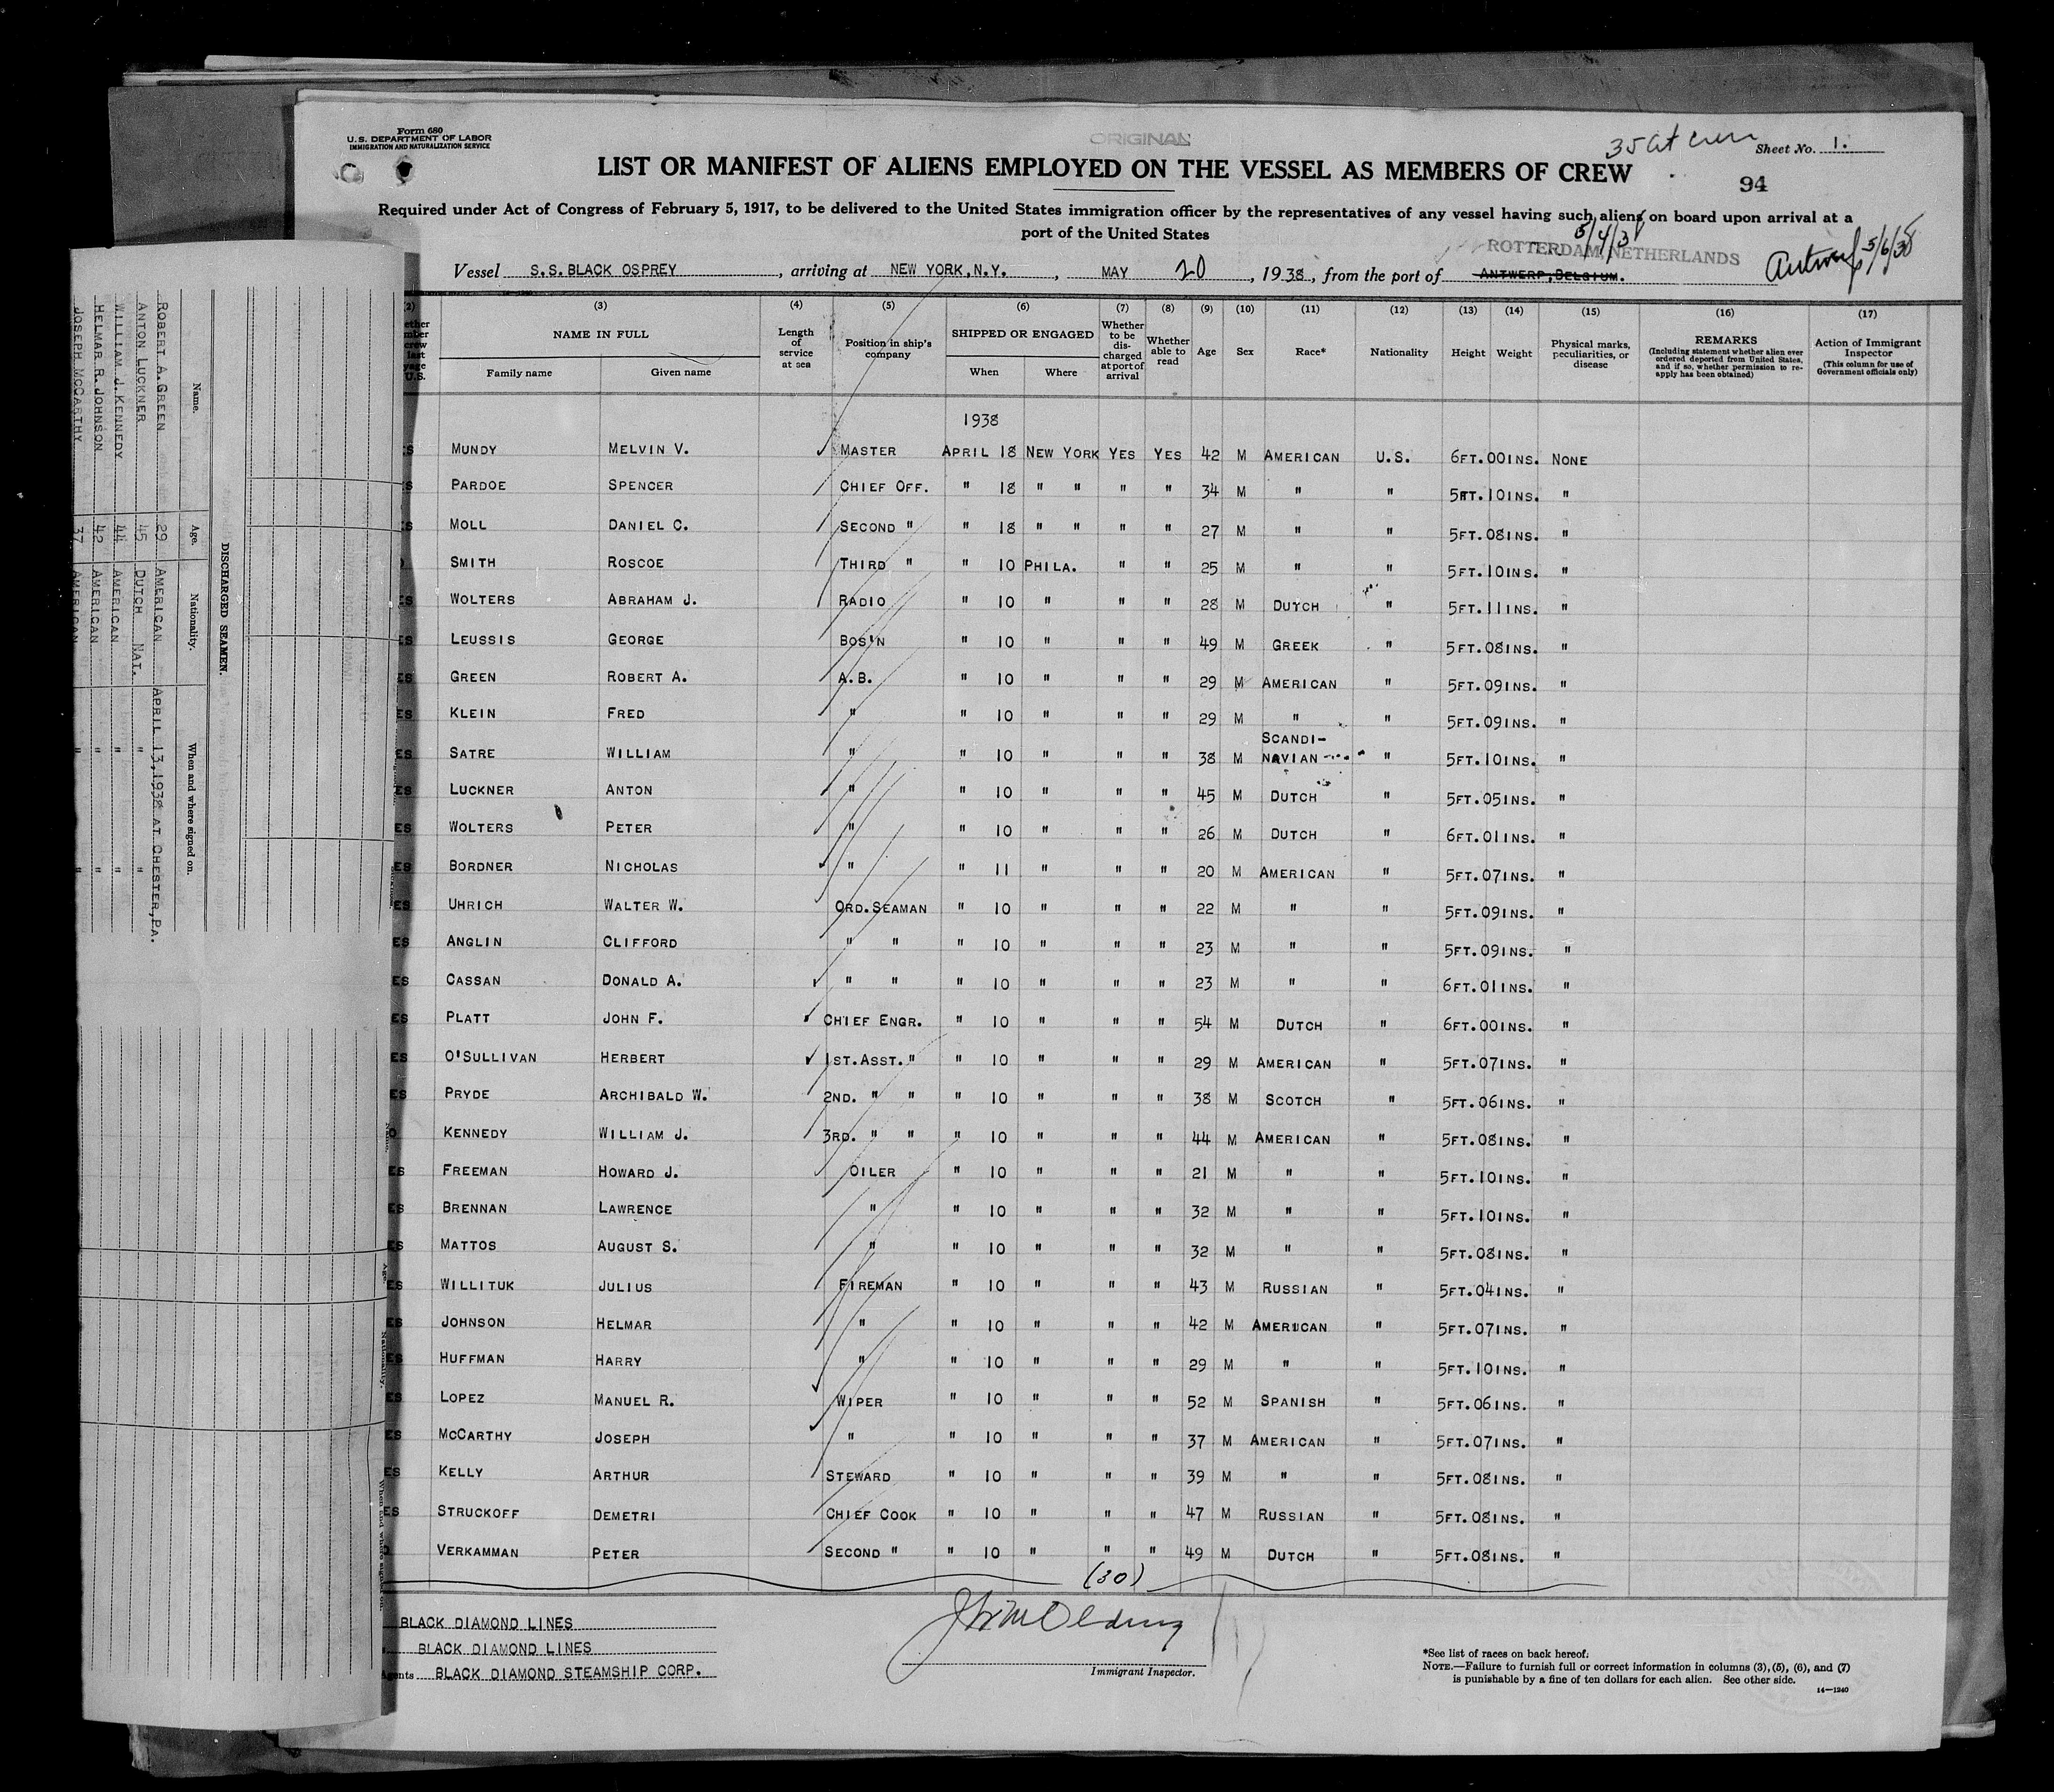 Form 680
U.S. DEPARTMENT OF LABOR
IMMIGRATION AND NATURALIZATION SERVICE
ORIGINAL
35 at crew
Sheet No. 1.
LIST OR MANIFEST OF ALIENS EMPLOYED ON THE VESSEL AS MEMBERS OF CREW
94
Required under Act of Congress of February 5, 1917, to be delivered to the United States immigration officer by the representatives of any vessel having such aliens on board upon arrival at a
port of the United States
5/4/38
ROTTERDAM, NETHERLANDS
Antwerp 5/6/38
Vessel S.S. BLACK OSPREY, arriving at NEW YORK, N.Y., MAY 20, 1938, from the port of ANTWERP, BELGIUM.
(2) (3) (4) (5) (6) (7) (8) (9) (10) (11) (12) (13) (14) (15) (16) (17)
NAME IN FULL
Family name
Given name
Length of service at sea
Position in ship's company
SHIPPED OR ENGAGED
When
Where
Whether to be discharged at port of arrival
Whether able to read
Age
Sex
Race*
Nationality
Height
Weight
Physical marks, peculiarities, or disease
REMARKS
(Including statement whether alien ever ordered deported from United States, and if so, whether permission to reapply has been obtained)
Action of Immigrant Inspector
(This column for use of Government officials only)
1938
MUNDY MELVIN V. MASTER APRIL 18 NEW YORK YES YES 42 M AMERICAN U.S. 6FT.00INS. NONE
PARDOE SPENCER CHIEF OFF. " 18 " " " " 34 M " " 5FT.10INS. "
MOLL DANIEL C. SECOND " " 18 " " " " 27 M " " 5FT.08INS. "
SMITH ROSCOE THIRD " " 10 PHILA. " " 25 M " " 5FT.10INS. "
WOLTERS ABRAHAM J. RADIO " 10 " " " 28 M DUTCH " 5FT.11INS. "
LEUSSIS GEORGE BOS'N " 10 " " " 49 M GREEK " 5FT.08INS. "
GREEN ROBERT A. A.B. " 10 " " " 29 M AMERICAN " 5FT.09INS. "
KLEIN FRED " " 10 " " " 29 M " " 5FT.09INS. "
SATRE WILLIAM " " 10 " " " 38 M SCANDI-NAVIAN " 5FT.10INS. "
LUCKNER ANTON " " 10 " " " 45 M DUTCH " 5FT.05INS. "
WOLTERS PETER " " 10 " " " 26 M DUTCH " 6FT.01INS. "
BORDNER NICHOLAS " " 11 " " " 20 M AMERICAN " 5FT.07INS. "
UHRICH WALTER W. ORD.SEAMAN " 10 " " " 22 M " " 5FT.09INS. "
ANGLIN CLIFFORD " " " 10 " " " 23 M " " 5FT.09INS. "
CASSAN DONALD A. " " " 10 " " " 23 M " " 6FT.01INS. "
PLATT JOHN F. CHIEF ENGR. " 10 " " " 54 M DUTCH " 6FT.00INS. "
O'SULLIVAN HERBERT 1ST.ASST." " 10 " " " 29 M AMERICAN " 5FT.07INS. "
PRYDE ARCHIBALD W. 2ND. " " " 10 " " " 38 M SCOTCH " 5FT.06INS. "
KENNEDY WILLIAM J. 3RD. " " " 10 " " " 44 M AMERICAN " 5FT.08INS. "
FREEMAN HOWARD J. OILER " 10 " " " 21 M " " 5FT.10INS. "
BRENNAN LAWRENCE " " 10 " " " 32 M " " 5FT.10INS. "
MATTOS AUGUST S. " " 10 " " " 32 M " " 5FT.08INS. "
WILLITUK JULIUS FIREMAN " 10 " " " 43 M RUSSIAN " 5FT.04INS. "
JOHNSON HELMAR " " 10 " " " 42 M AMERICAN " 5FT.07INS. "
HUFFMAN HARRY " " 10 " " " 29 M " " 5FT.10INS. "
LOPEZ MANUEL R. WIPER " 10 " " " 52 M SPANISH " 5FT.06INS. "
MCCARTHY JOSEPH " " 10 " " " 37 M AMERICAN " 5FT.07INS. "
KELLY ARTHUR STEWARD " 10 " " " 39 M " " 5FT.08INS. "
STRUCKOFF DEMETRI CHIEF COOK " 10 " " " 47 M RUSSIAN " 5FT.08INS. "
VERKAMMAN PETER SECOND " " 10 " " " 49 M DUTCH " 5FT.08INS. "
(30)
BLACK DIAMOND LINES
BLACK DIAMOND LINES
Agents BLACK DIAMOND STEAMSHIP CORP.
Immigrant Inspector.
*See list of races on back hereof.
NOTE.—Failure to furnish full or correct information in columns (3), (5), (6), and (7)
is punishable by a fine of ten dollars for each alien. See other side.
14—1240
DISCHARGED SEAMEN.
Name. Age. Nationality. When and where signed on.
ROBERT A. GREEN 29 AMERICAN APRIL 13, 1938 AT CHESTER, PA.
ANTON LUCKNER 45 DUTCH NAT. " "
WILLIAM J. KENNEDY 44 AMERICAN " "
HELMAR R. JOHNSON 42 AMERICAN " "
JOSEPH MCCARTHY 37 AMERICAN " "